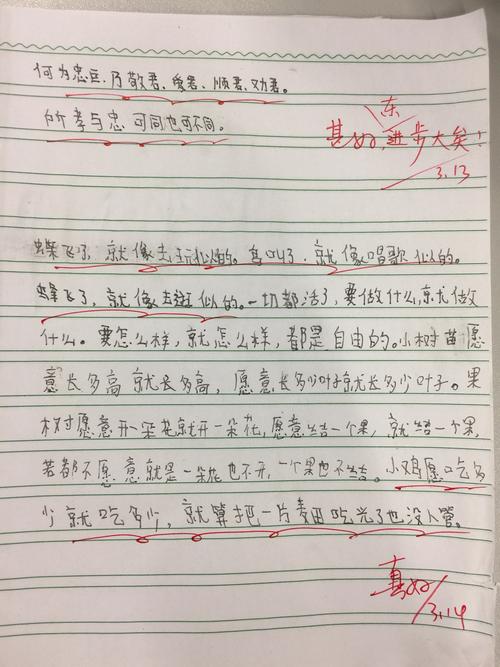 何为忠臣,乃敬君、爱君、顺君、劝君。
所孝与忠可同也可不同。
东
甚好,进步大矣!
3.13
蝶飞了,就像去玩似的。鸟叫了,就像唱歌似的。
蜂飞了,就像去逛似的。一切都活了,要做什么,就做
什么。要怎么样,就怎么样,都是自由的。小树苗愿
意长多高就长多高,愿意长多少叶子就长多少叶子。果
树愿意开一朵花就开一朵花,愿意结一个果,就结一个果,
若都不愿意就是一朵花也不开,一个果也不结。小鸡愿吃多
少就吃多少,就算把一片麦田吃光了也没人管。
真好
3.14